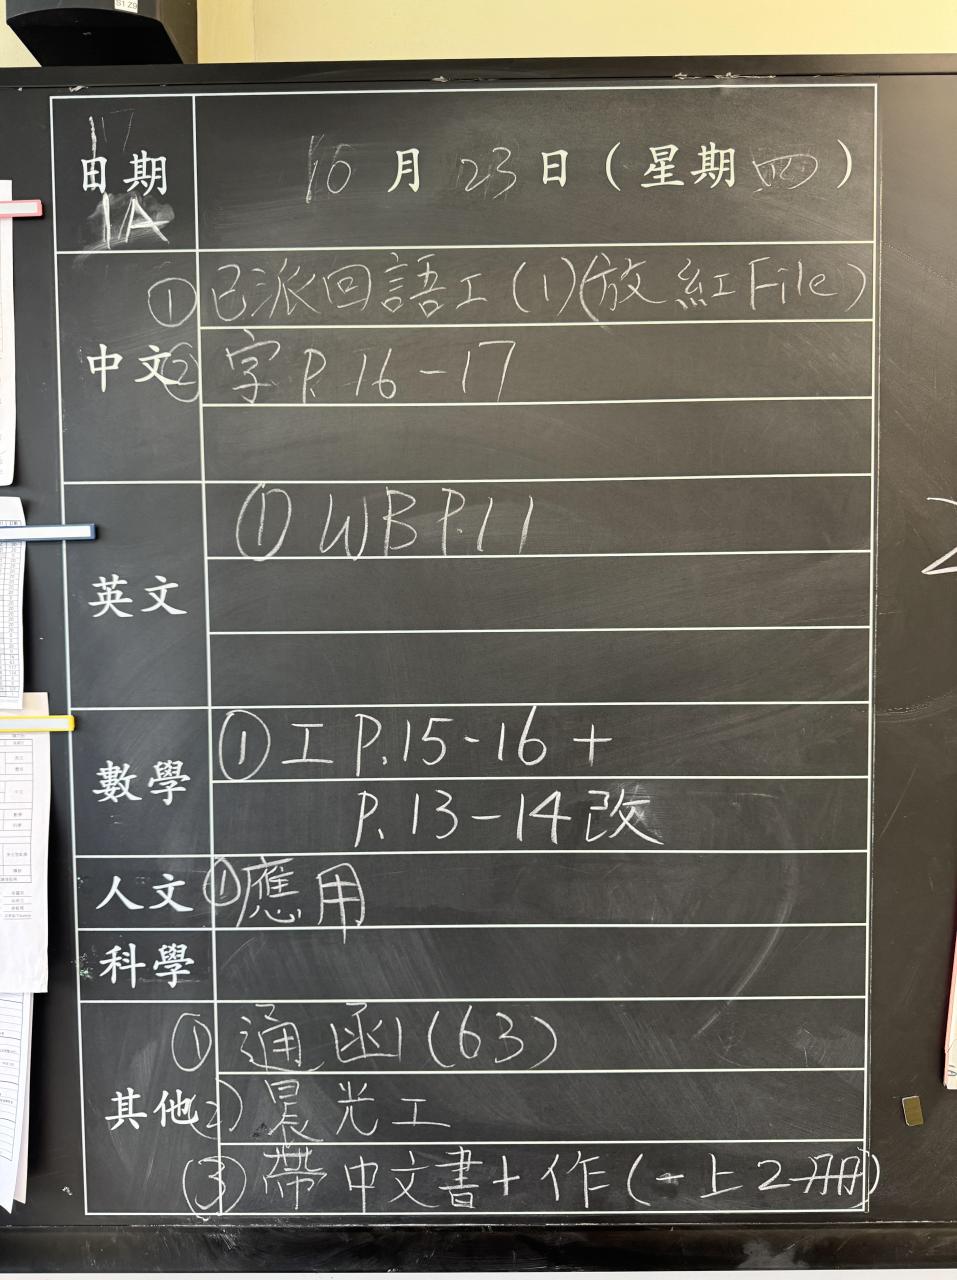 S1 Z9
17
日期 10月23日(星期四)
1A
中文
① 已派回語工(1)(放紅File)
② 字P.16-17
英文
① WB P.11
數學
① 工P.15-16+
P.13-14改
人文 ① 應用
科學
其他
① 通函(63)
② 晨光工
③ 帶中文書+作(一上2冊)